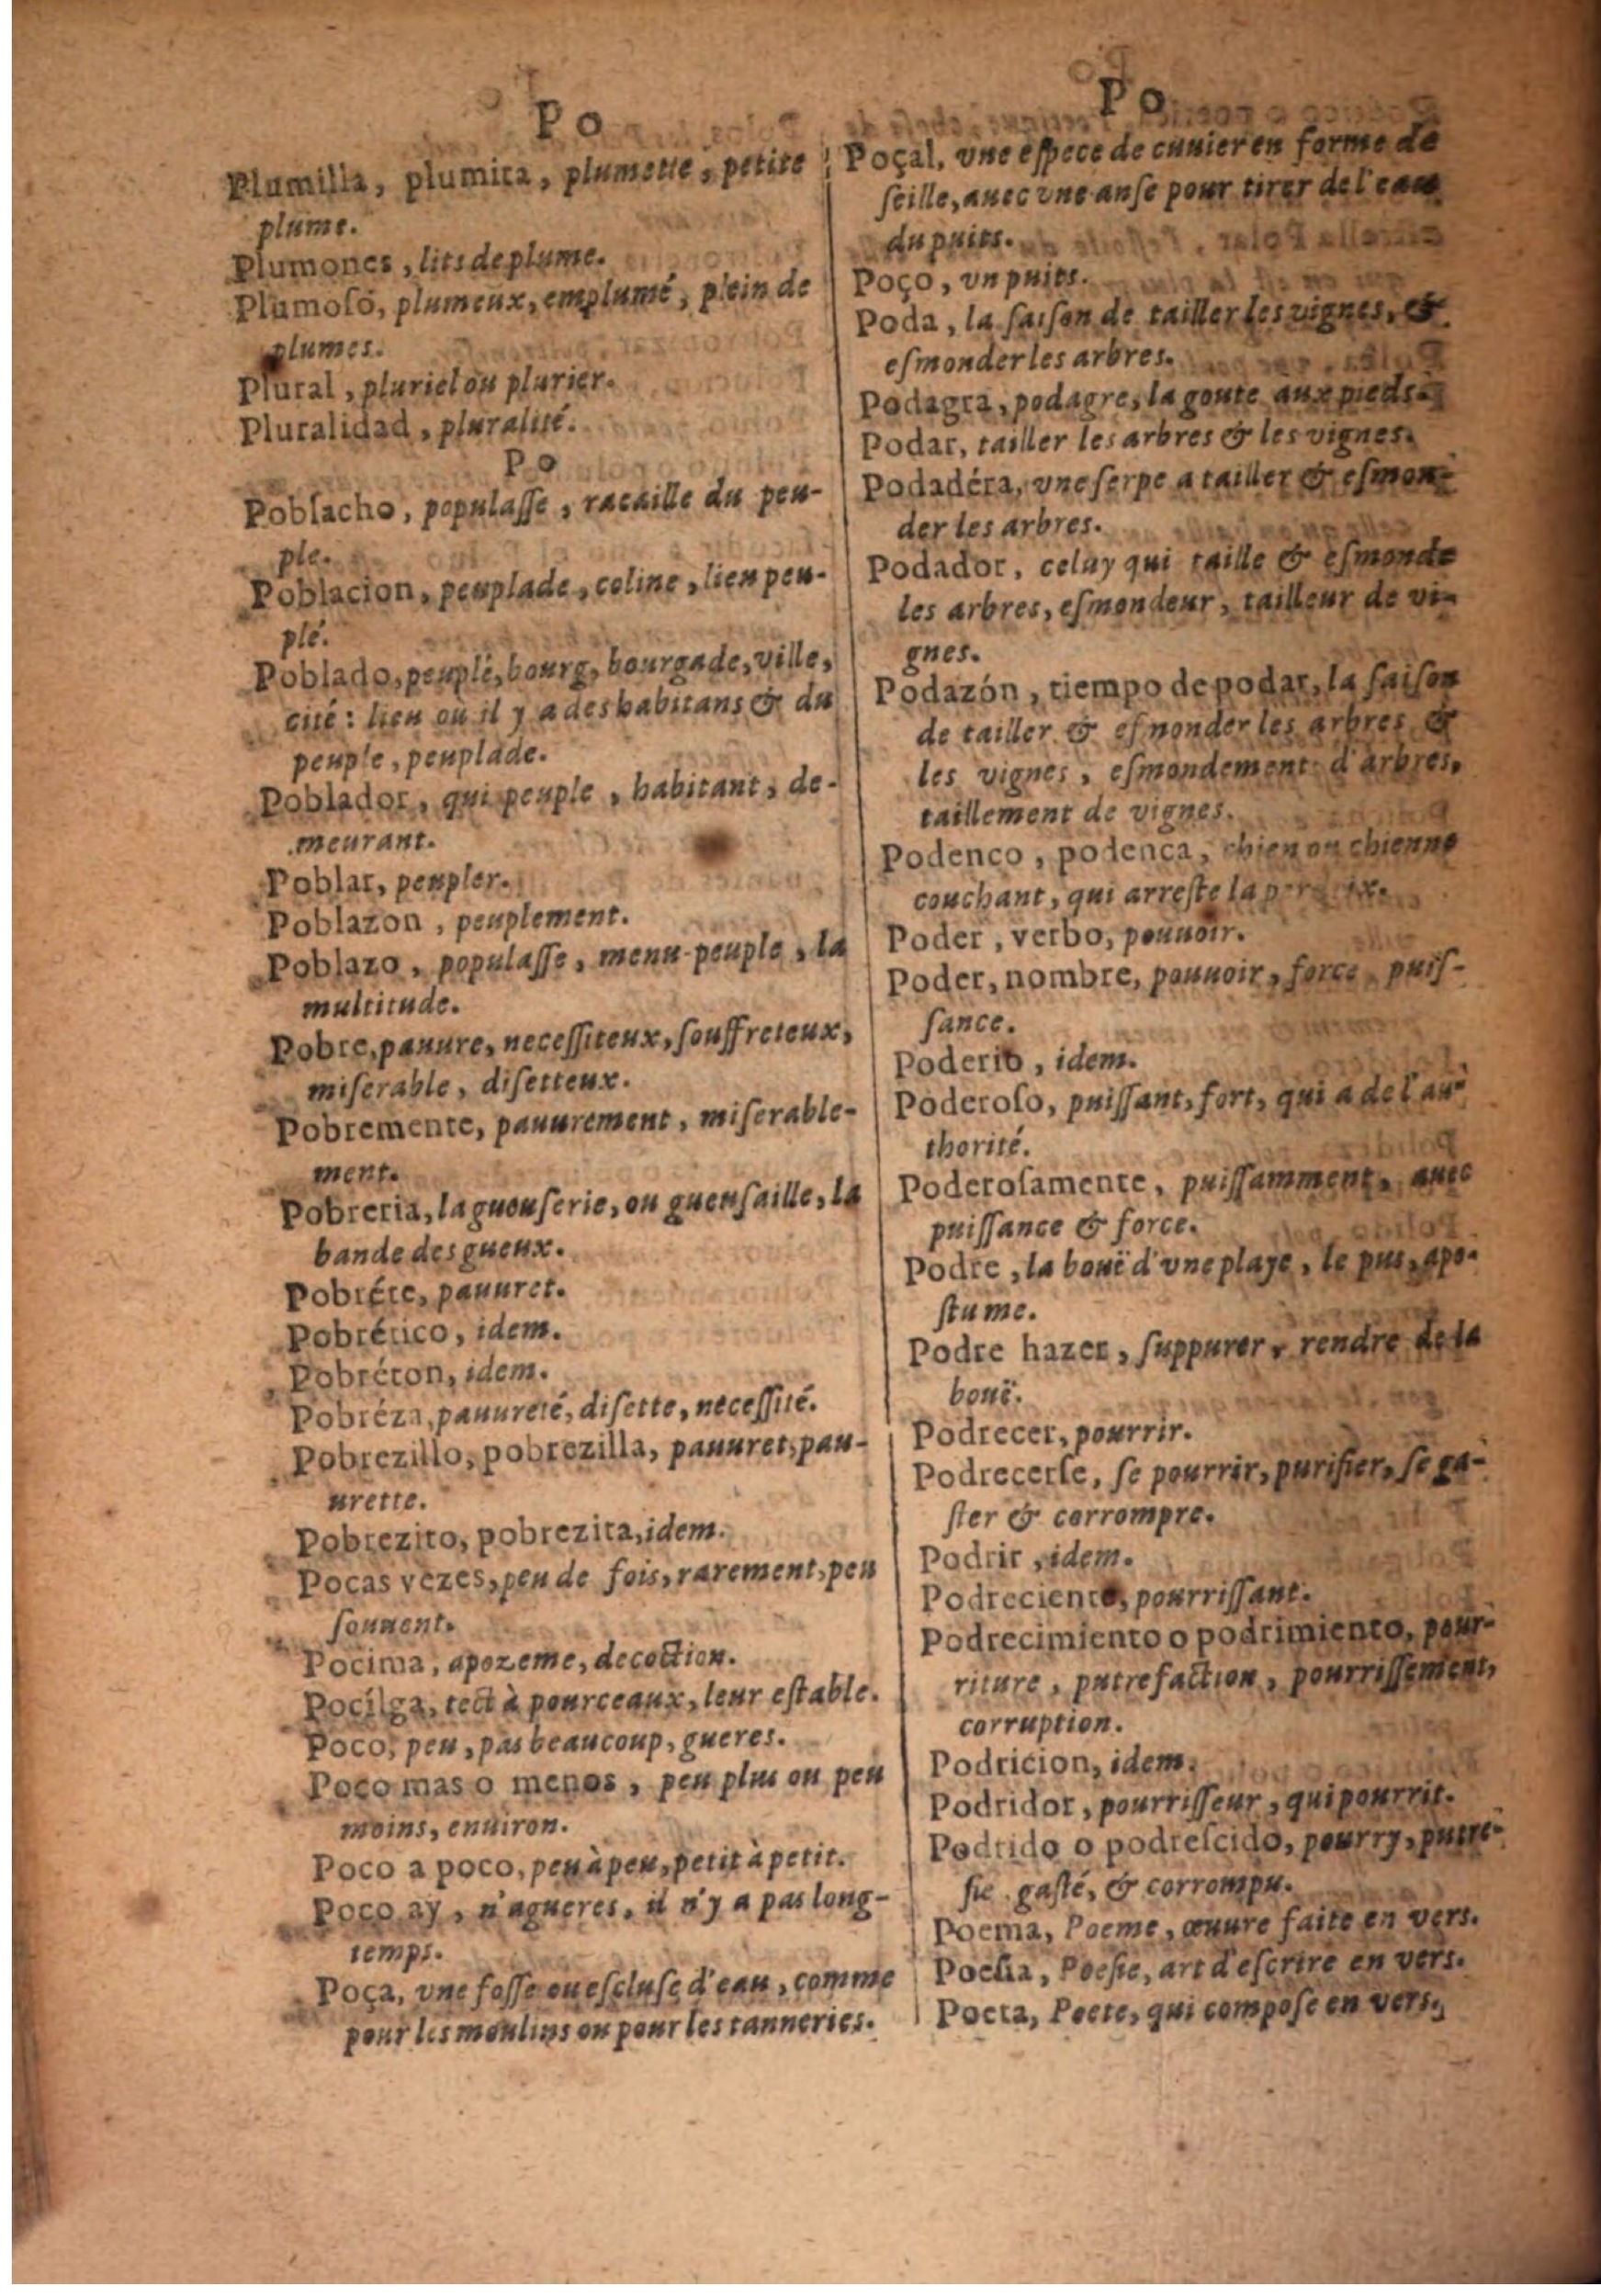 Po
Plumilla, plumita, plumette, petite
plume.
Plumones, lits de plume.
Plumoſo, plumeux, emplumé, plein de
plumes.
Plural, pluriel ou plurier.
Pluralidad, pluralité.
Po
Poblacho, populaſſe, racaille du peu-
ple.
Poblacion, peuplade, coline, lieu peu-
plé.
Poblado, peuplé, bourg, bourgade, ville,
cité: lieu ou il y a des habitans & du
peuple, peuplade.
Poblador, qui peuple, habitant, de-
meurant.
Poblar, peupler.
Poblazon, peuplement.
Poblazo, populaſſe, menu-peuple, la
multitude.
Pobre, pauure, neceſſiteux, ſouffreteux,
miſerable, diſetteux.
Pobremente, pauurement, miſerable-
ment.
Pobreria, la gueuſerie, ou gueuſaille, la
bande des gueux.
Pobréte, pauuret.
Pobrético, idem.
Pobréton, idem.
Pobréza, pauureté, diſette, neceſſité.
Pobrezillo, pobrezilla, pauuret, pau-
urette.
Pobrezito, pobrezita, idem.
Pocas vezes, peu de fois, rarement, peu
ſouuent.
Pocima, apozeme, decoction.
Pocílga, tect à pourceaux, leur eſtable.
Poco, peu, pas beaucoup, gueres.
Poco mas o menos, peu plus ou peu
moins, enuiron.
Poco a poco, peu à peu, petit à petit.
Poco ay, n'agueres, il n'y a pas long-
temps.
Poça, vne foſſe ou eſcluſe d'eau, comme
pour les moulins ou pour les tanneries.
Po
Poçal, vne eſpece de cuuier en forme de
ſeille, auec vne anſe pour tirer de l'eau
du puits.
Poço, vn puits.
Poda, la ſaiſon de tailler les vignes, &
eſmonder les arbres.
Podagra, podagre, la goute aux pieds.
Podar, tailler les arbres & les vignes.
Podadéra, vne ſerpe a tailler & eſmon-
der les arbres.
Podador, celuy qui taille & eſmonde
les arbres, eſmondeur, tailleur de vi-
gnes.
Podazón, tiempo de podar, la ſaiſon
de tailler & eſmonder les arbres &
les vignes, eſmondement d'arbres,
taillement de vignes.
Podenco, podenca, chien ou chienne
couchant, qui arreſte la perdrix.
Poder, verbo, pouuoir.
Poder, nombre, pouuoir, force, puiſ-
ſance.
Poderio, idem.
Poderoſo, puiſſant, fort, qui a de l'au-
thorité.
Poderoſamente, puiſſamment, auec
puiſſance & force.
Podre, la bouë d'vne playe, le pus, apo-
ſtume.
Podre hazer, ſuppurer, rendre de la
bouë.
Podrecer, pourrir.
Podrecerſe, ſe pourrir, purifier, ſe ga-
ſter & corrompre.
Podrir, idem.
Podreciente, pourriſſant.
Podrecimiento o podrimiento, pour-
riture, putrefaction, pourriſſement,
corruption.
Podricion, idem.
Podridor, pourriſſeur, qui pourrit.
Podrido o podreſcido, pourry, putre-
fie, gaſté, & corrompu.
Poema, Poeme, œuure faite en vers.
Poeſia, Poeſie, art d'eſcrire en vers.
Poeta, Poete, qui compoſe en vers.